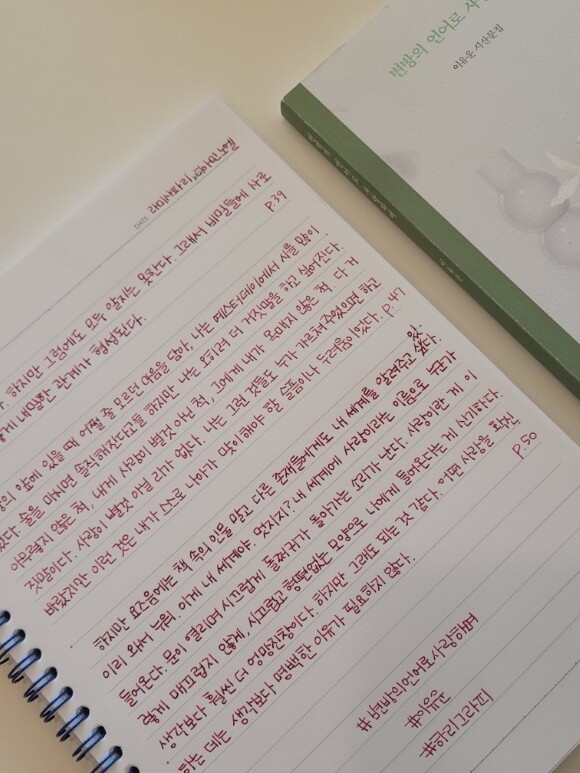 변방의 언어로 사
이유운 시산문집
DATE. 라미사파리, 다이아민 노엘
하지만 그럼에도 모두 알지는 못한다. 그래서 비밀들에 사로
렇게 내밀한 관계가 형성된다. p.39
앞에 있을 때 어쩔 줄 모르던 마음을 담아, 나는 예스터데이에서 시를 많이
썼다. 술을 마시면 솔직해진다고들 하지만 나는 오히려 더 거짓말을 하고 싶어진다.
아무렇지 않은 척, 내게 사랑이 별것 아닌 척, I에게 내가 목매지 않은 척. 다 거
짓말이다. 사랑이 별것 아닐 리가 없다. 나는 그런 것들도 누가 가르쳐주었으면 하고
바랐지만 이런 것은 내가 스스로 나아가 맞이해야 할 슬픔이나 두려움이었다. p.47
하지만 요즘에는 책 속의 인물 말고 다른 존재들에게도 내 세계를 알려주고 있다.
이리 와서 누워. 이게 내 세계야. 멋지지? 내 세계에 사랑이라는 이름으로 누군가
들어온다. 문이 열리며 시끄럽게 돌쩌귀가 돌아가는 소리가 난다. 사랑이란 게 이
렇게 매끄럽지 않게, 시끄럽고 형편없는 모양으로 나에게 들어온다는 게 신기하다.
생각보다 훨씬 더 엉망진창이다. 하지만 그래도 되는 것 같다. 어떤 사랑을 확신
하는 데는 생각보다 명백한 이유가 필요하지 않다. p.50
#변방의언어로사랑하며
#이유운
#구름의그림자